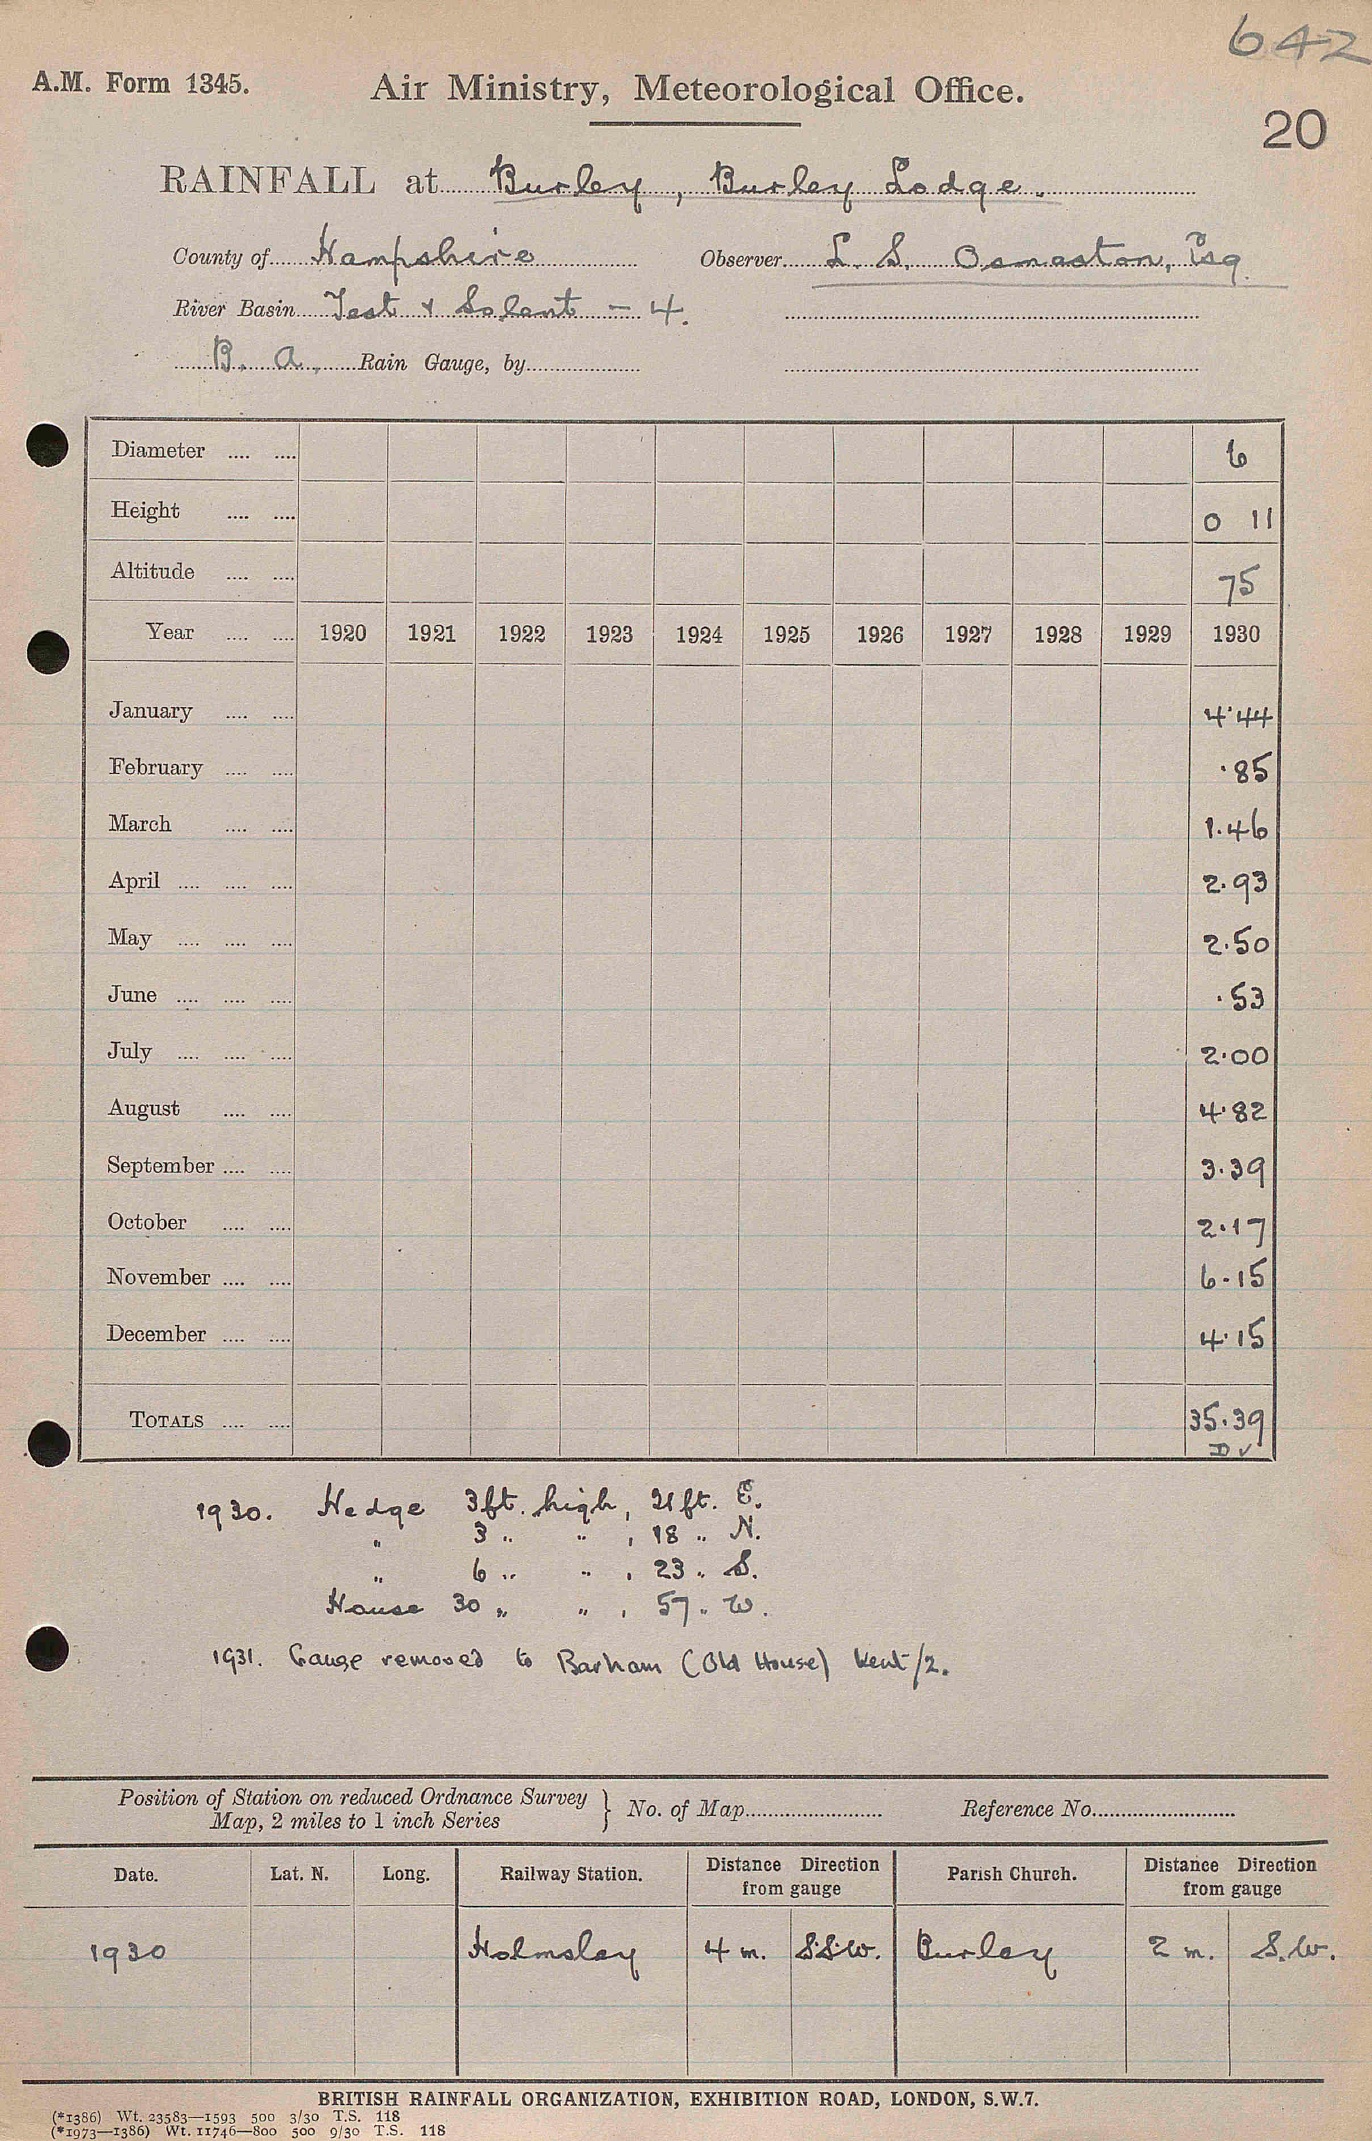 642
A.M. Form 1345.
Air Ministry, Meteorological Office.
20
RAINFALL at Burley, Burley Lodge.
County of Hampshire Observer L. S. Osmaston, Esq.
River Basin Test & Solent - 4.
B. A. Rain Gauge, by
Diameter 6
Height 0 11
Altitude 75
Year 1920 1921 1922 1923 1924 1925 1926 1927 1928 1929 1930
January 4.44
February .85
March 1.46
April 2.93
May 2.50
June .53
July 2.00
August 4.82
September 3.39
October 2.17
November 6.15
December 4.15
TOTALS 35.39
D ✓
1930. Hedge 3 ft. high, 21 ft. E.
" 3 " " , 18 " N.
" 6 " " , 23 " S.
House 30 " " , 57 " W.
1931. Gauge removed to Barham (Old House) Kent/2.
Position of Station on reduced Ordnance Survey
Map, 2 miles to 1 inch Series } No. of Map Reference No.
Date. Lat. N. Long. Railway Station. Distance Direction from gauge Parish Church. Distance Direction from gauge
1930 Holmsley 4 m. S.S.W. Burley 2 m. S.W.
BRITISH RAINFALL ORGANIZATION, EXHIBITION ROAD, LONDON, S.W.7.
(*1386) Wt. 23583—1593 500 3/30 T.S. 118
(*1973—1386) Wt. 11746—800 500 9/30 T.S. 118